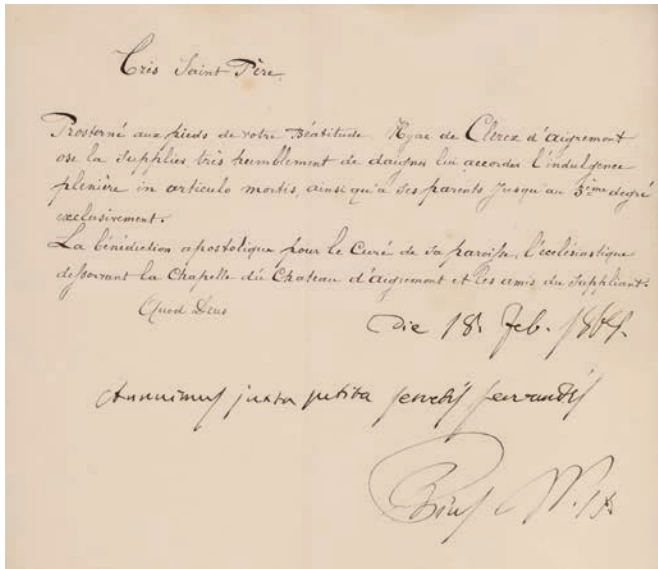 Très Saint Père.
Prosterné aux pieds de votre Béatitude Hyac de Clerez d'aigremont
ose la Supplier très humblement de daigner lui accorder l'indulgence
plenière in articulo mortis, ainsi qu'à ses parents jusqu'au 3ème degré
exclusivement.
La bénédiction apostolique pour le Curé de sa paroisse, l'ecclésiastique
desservant la Chapelle du Chateau d'aigremont et les amis du Suppliant.
Quod Deus
Die 18. Feb. 1869.
Annuimus juxta petita servatis servandis
Pius PP. IX